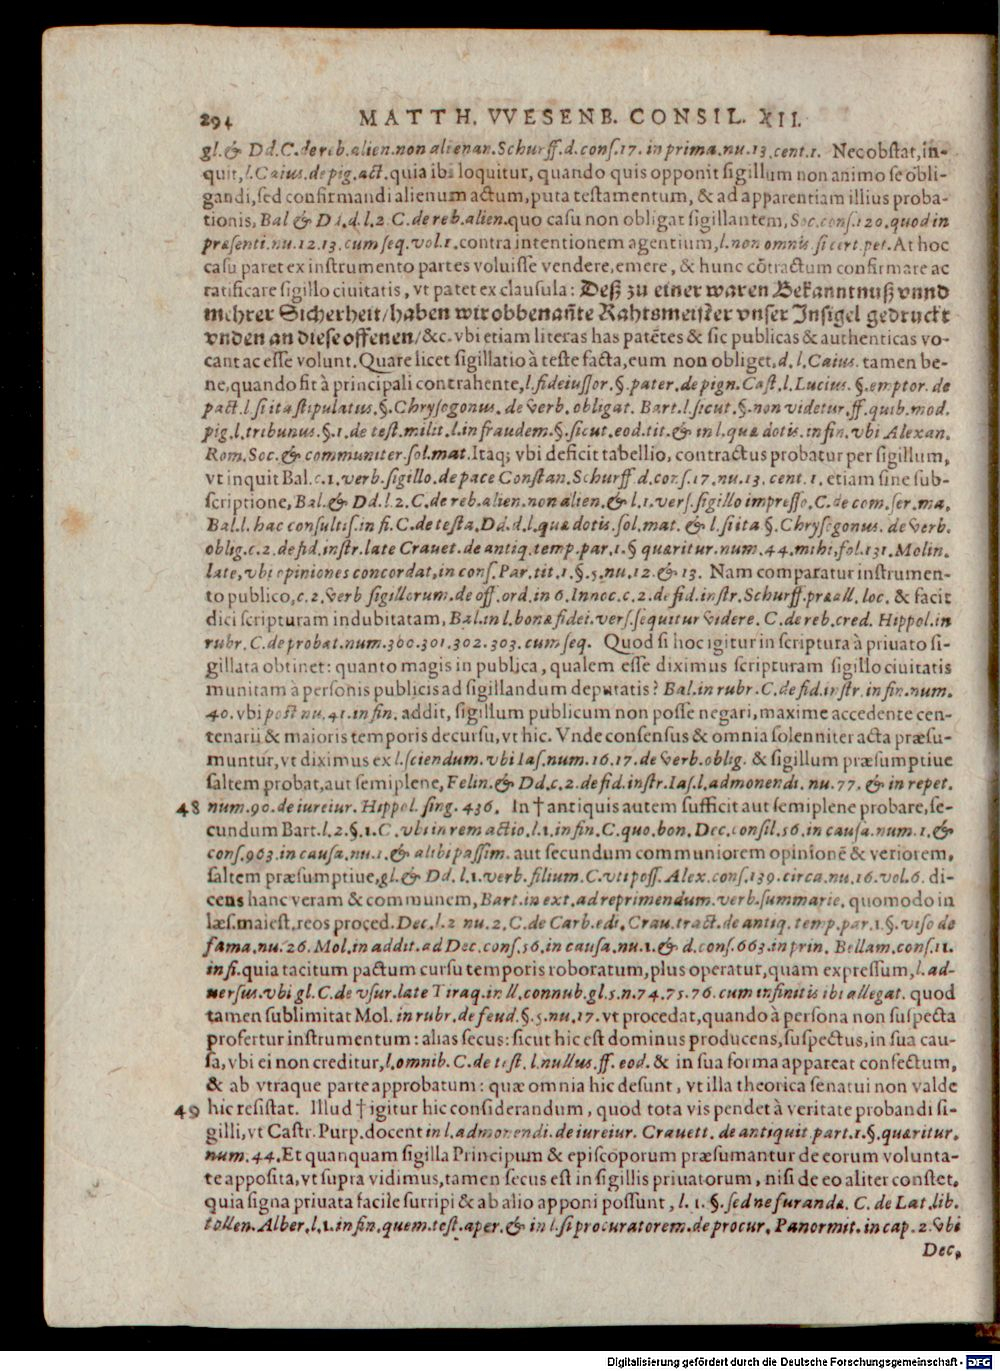 294 MATTH. VVESENB. CONSIL. XII.
gl. & Dd. C. de reb. alien. non alienan. Schurff. d. cons. 17. in prima. nu. 13. cent. 1. Nec obstat, in-
quit, l. Caius. de pig. act. quia ibi loquitur, quando quis opponit sigillum non animo se obli-
gandi, sed confirmandi alienum actum, puta testamentum, & ad apparentiam illius proba-
tionis, Bal & Dd. d. l. 2. C. de reb. alien. quo casu non obligat sigillantem, Soc. cons. 120. quod in
præsenti. nu. 12. 13. cum seq. vol. 1. contra intentionem agentium, l. non omnis. si cert. pet. At hoc
casu paret ex instrumento partes voluisse vendere, emere, & hunc cõtractum confirmare ac
ratificare sigillo ciuitatis, vt patet ex clausula: Deß zu einer waren Bekanntnuß vnnd
mehrer Sicherheit/haben wir obbenañte Rahtsmeister vnser Insigel gedruckt
vnden an diese offenen/&c. vbi etiam literas has patẽtes & sic publicas & authenticas vo-
cant ac esse volunt. Quare licet sigillatio à teste facta, eum non obliget, d. l. Caius. tamen be-
ne, quando fit à principali contrahente, l. fideiussor. §. pater. de pign. Cast. l. Lucius. §. emptor. de
pact. l. si ita stipulatus. §. Chrysogonus. de verb. obligat. Bart. l. sicut. §. non videtur. ff. quib. mod.
pig. l. tribunus. §. 1. de test. milit. l. in fraudem. §. sicut. eod. tit. & in l. quæ dotis. in fin. vbi Alexan.
Rom. Soc. & communiter. sol. mat. Itaq; vbi deficit tabellio, contractus probatur per sigillum,
vt inquit Bal. c. 1. verb. sigillo. de pace Constan. Schurff. d. cons. 17. nu. 13. cent. 1. etiam sine sub-
scriptione, Bal. & Dd. l. 2. C. de reb. alien. non alien. & l. 1. vers. sigillo impresso. C. de com. ser. ma.
Bal. l. hac consultis. in fi. C. de testa. Dd. d. l. quæ dotis. sol. mat. & l. si ita §. Chrysogonus. de verb.
oblig. c. 2. de fid. instr. late Crauet. de antiq. temp. par. 1. § quæritur. num. 44. mihi, fol. 131. Molin.
late, vbi opiniones concordat, in cons. Par. tit. 1. §. 5. nu. 12. & 13. Nam comparatur instrumen-
to publico, c. 2. verb sigillorum. de off. ord. in 6. Innoc. c. 2. de fid. instr. Schurff. præall. loc. & facit
dici scripturam indubitatam, Bal. in l. bonæ fidei. vers. sequitur videre. C. de reb. cred. Hippol. in
rubr. C. de probat. num. 300. 301. 302. 303. cum seq. Quod si hoc igitur in scriptura à priuato si-
gillata obtinet: quanto magis in publica, qualem esse diximus scripturam sigillo ciuitatis
munitam à personis publicis ad sigillandum deputatis? Bal. in rubr. C. de fid. instr. in fin. num.
40. vbi post nu. 41. in fin. addit, sigillum publicum non posse negari, maxime accedente cen-
tenarii & maioris temporis decursu, vt hic. Vnde consensus & omnia solenniter acta præsu-
muntur, vt diximus ex l. sciendum. vbi Ias. num. 16. 17. de verb. oblig. & sigillum præsumptiue
saltem probat, aut semiplene, Felin. & Dd. c. 2. de fid. instr. Ias. l. admonendi. nu. 77. & in repet.
48 num. 90. de iureiur. Hippol. sing. 436. In † antiquis autem sufficit aut semiplene probare, se-
cundum Bart. l. 2. §. 1. C. vbi in rem actio. l. 1. in fin. C. quo. bon. Dec. consil. 56. in causa. num. 1. &
cons. 963. in causa. nu. 1. & alibi passim. aut secundum communiorem opinionẽ & veriorem,
saltem præsumptiue, gl. & Dd. l. 1. verb. filium. C. vti poss. Alex. cons. 139. circa. nu. 16. vol. 6. di-
cens hanc veram & communem, Bart. in ext. ad reprimendum. verb. summarie. quomodo in
læs. maiest. reos proced. Dec. l. 2 nu. 2. C. de Carb. edi. Crau. tract. de antiq. temp. par. 1. §. viso de
fama. nu. 26. Mol. in addit. ad Dec. cons. 56. in causa. nu. 1. & d. cons. 663. in prin. Bellam. cons. 11.
in fi. quia tacitum pactum cursu temporis roboratum, plus operatur, quam expressum, l. ad-
uersus. vbi gl. C. de vsur. late Tiraq. in ll. connub. gl. 5. n. 74. 75. 76. cum infinitis ibi allegat. quod
tamen sublimitat Mol. in rubr. de feud. §. 5. nu. 17. vt procedat, quando à persona non suspecta
profertur instrumentum: alias secus: sicut hic est dominus producens, suspectus, in sua cau-
sa, vbi ei non creditur, l. omnib. C. de test. l. nullus. ff. eod. & in sua forma appareat confectum,
& ab vtraque parte approbatum: quæ omnia hic desunt, vt illa theorica senatui non valde
49 hic resistat. Illud † igitur hic considerandum, quod tota vis pendet à veritate probandi si-
gilli, vt Castr. Purp. docent in l. admonendi. de iureiur. Crauett. de antiquit. part. 1. §. quæritur.
num. 44. Et quanquam sigilla Principum & episcoporum præsumantur de eorum volunta-
te apposita, vt supra vidimus, tamen secus est in sigillis priuatorum, nisi de eo aliter constet.
quia signa priuata facile surripi & ab alio apponi possunt, l. 1. §. sed ne furandæ. C. de Lat. lib.
tollen. Alber. l. 1. in fin. quem. test. aper. & in l. si procuratorem. de procur. Panormit. in cap. 2. vbi
Dec.
Digitalisierung gefördert durch die Deutsche Forschungsgemeinschaft - DFG